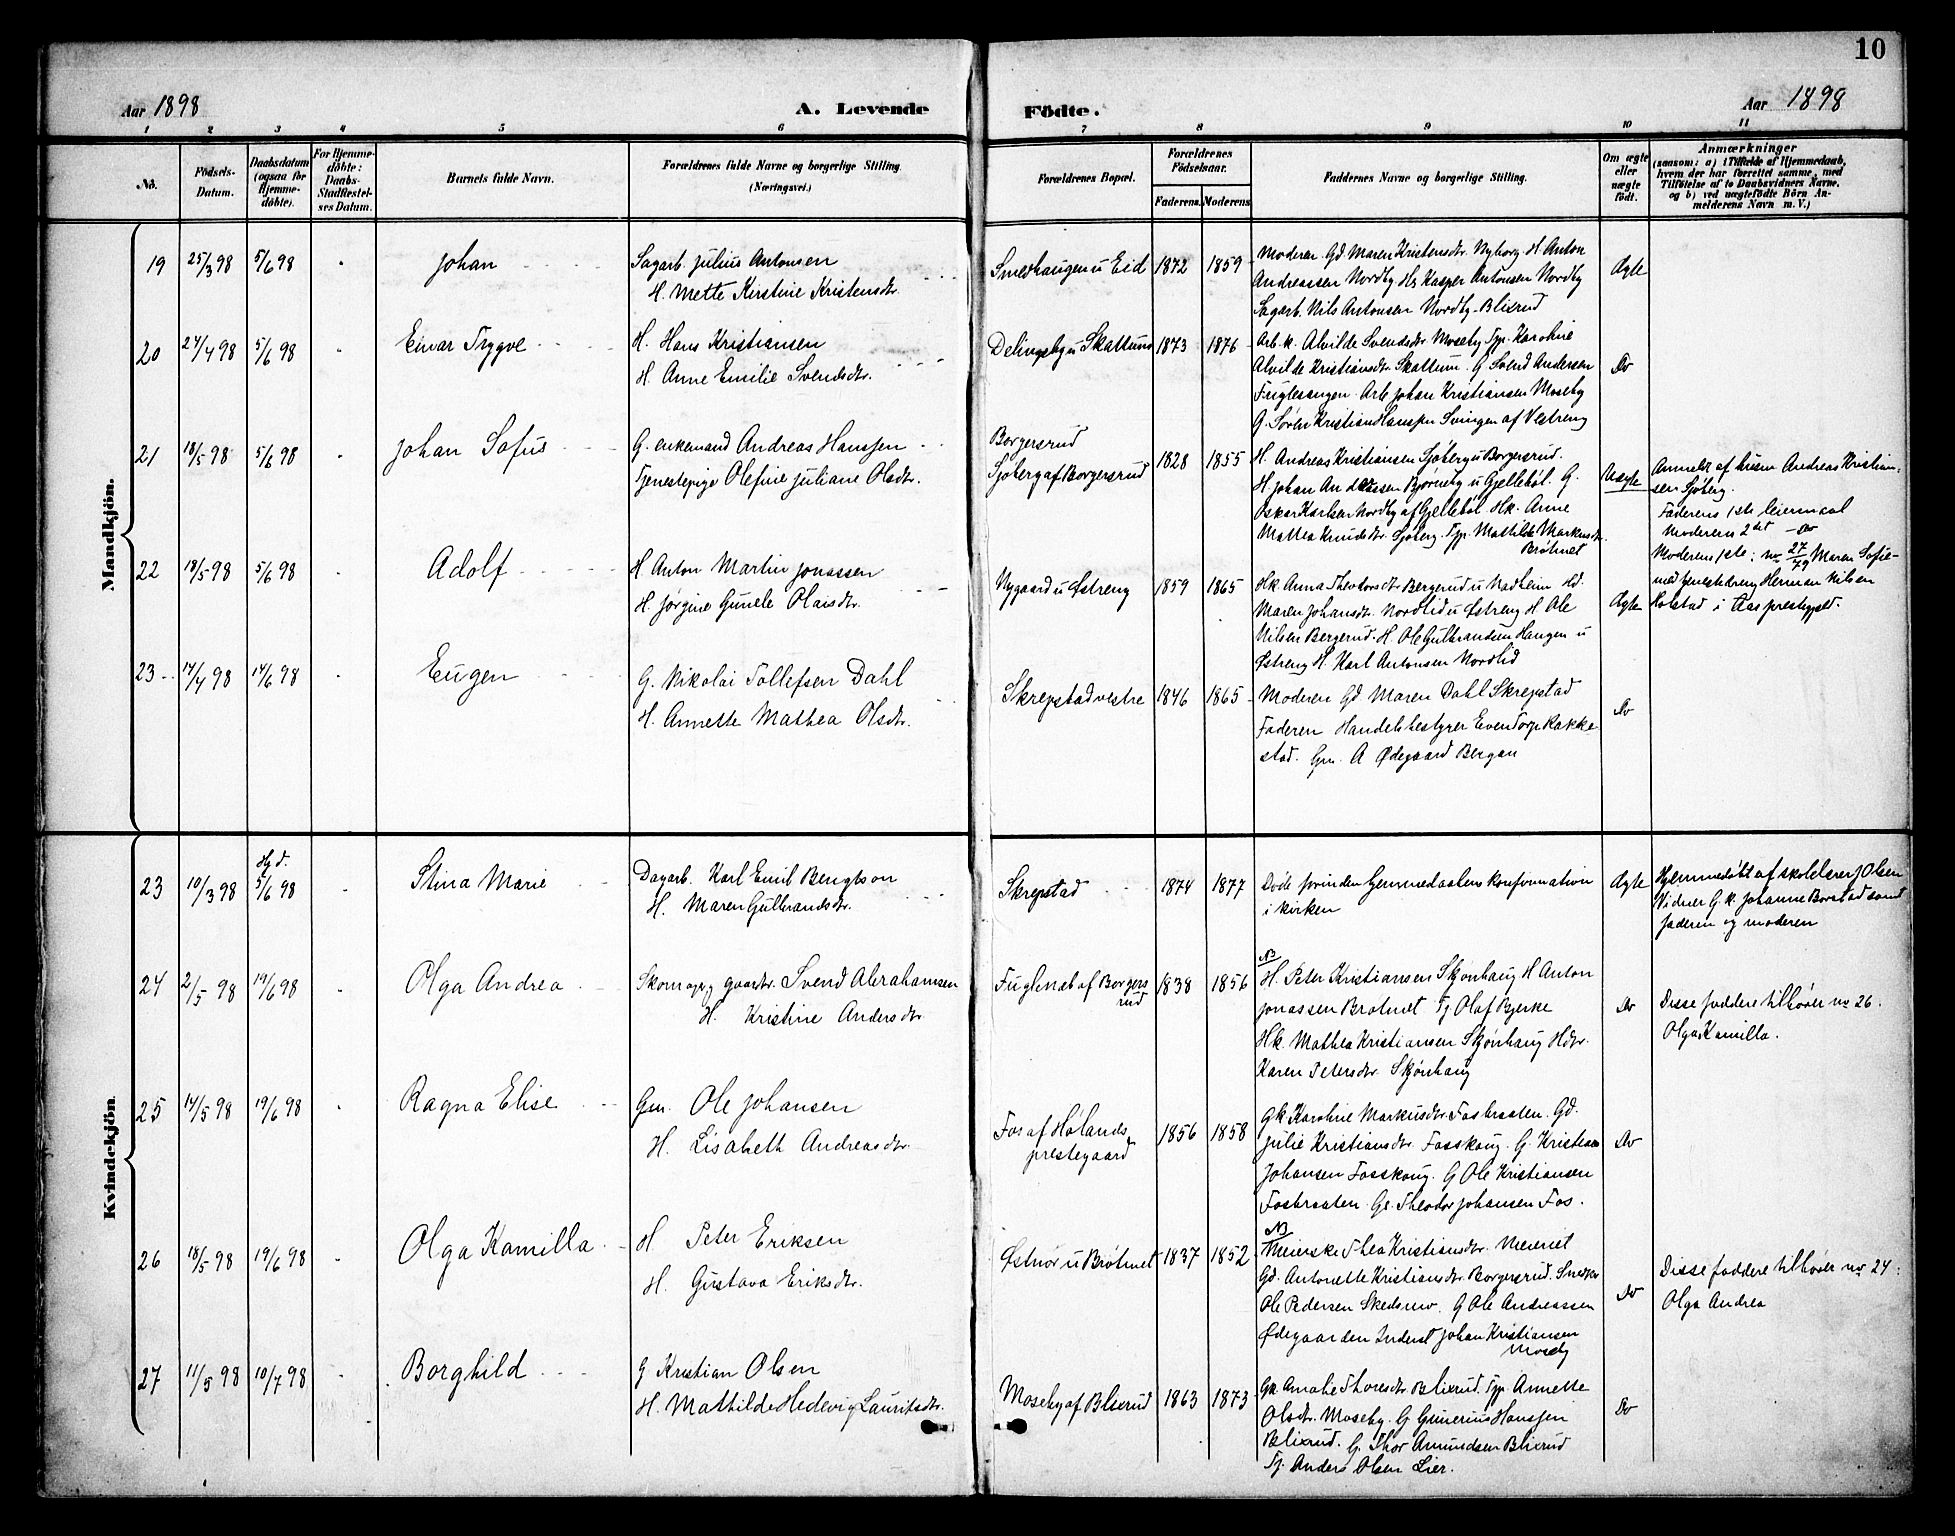 10
Aar 1898
A. Levende
Födte.
Aar 1898
1 2 3 4 5 6 7 8 9 10 11
No.
Födsels-
Datum.
Daabsdatum
(ogsaa for
Hjemme-
döbte).
For Hjemme-
döbte:
Daabs-
Stadfæstel-
ses Datum.
Barnets fulde Navn.
Forældrenes fulde Navne og borgerlige Stilling.
(Næringsvei.)
Forældrenes Bopæl.
Forældrenes
Födselsaar.
Faderens. Moderens.
Faddernes Navne og borgerlige Stilling.
Om ægte
eller
uægte
födt.
Anmærkninger
(saasom: a) i Tilfælde af Hjemmedaab,
hvem der har forrettet samme, med
Tilföielse af to Daabsvidners Navne,
og b) ved uægtefödte Börn An-
melderens Navn m. V.)
Mandkjön.
19 25/3 98 5/6 98 " Johan
Sagarb. Julius Antonsen
H. Mette Kirstine Kristensdtr.
Smedhaugen u Eid 1872 1859
Moderen Gd Maren Kristensdtr. Nyborg. H. Anton
Andreassen Nordby Hs Kasper Antonsen Nordby
Sagarb. Nils Antonsen Nordby-Blixrud
Ægte
20 24/4 98 5/6 98 " Einar Trygve
H. Hans Kristiansen
H. Anne Emilie Svendsdtr.
Delingsby u Skattum 1873 1876
Arb.k. Alvilde Svendsdtr Moseby Tp. Karoline
Alvilde Kristiansdtr. Skattum. G Svend Andersen
Fuglesangen. Arb Johan Kristiansen Moseby
G. Sören Kristian Hanssen Svingen af Vestreng
Do
21 18/5 98 5/6 98 " Johan Sofus
G. enkemand Andreas Hanssen
Tjenestepige Olefine Juliane Olsdtr.
Borgersrud
Sjöberg af Borgersrud 1828 1855
H. Andreas Kristiansen Sjöberg u Borgersrud.
H. Johan Andreassen Bjørneby u Gjelleböl. G.
Oskar Karlsen Nordby af Gjelleböl Hk. Anne
Mathea Knudsdtr. Sjöberg. Tp. Mathilde Markusdtr.
Bråtnet
Uægte
Anmeldt af husm Andreas Kristian-
sen Sjöberg.
Faderens 1ste leiermaal
Moderens 2det - Do
Moderens 1ste: no 27/79 Maren Sofie
med tjenestedreng Herman Nilsen
Holstad i Aas prestegjeld.
22 18/5 98 5/6 98 " Adolf
H Anton Martin Jonassen
H. Jørgine Gunele Olaisdtr.
Nygaard u Østreng 1859 1865
Hk. Anna Theodorsdtr Bergerud u Nadheim Hd.
Maren Johansdtr. Nordlid u Østreng H Ole
Nilsen Bergerud. H. Ole Gulbrandsen Haugen u
Østreng H. Karl Antonsen Nordlid
Ægte
23 14/4 98 14/6 98 " Eugen
G. Nikolai Tollefsen Dahl
H. Annette Mathea Olsdtr.
Skrepstad vestre 1846 1865
Moderen Gd Maren Dahl Skrepstad
Faderen Handelsbestyrer Even Torp Rakke
stad. Gm. A Ødegaard Bergan
Do
Kvindekjön.
23 10/3 98 Hj.d. 5/6 98 " Stina Marie
Dagarb. Karl Emil Bengtson
H. Maren Gulbrandsdtr.
Skrepstad 1874 1877
Døde forinden hjemmedaabens konfirmation
i kirken
Ægte
Hjemmedöbt af skolelærer J Olsen
Vidner G.k. Johanne Borstad samt
faderen og moderen
24 2/5 98 19/6 98 " Olga Andrea
Skomager, gaardr. Svend Abrahamsen
H. Kristine Andersdtr
Fuglenæb af Borgers
rud 1838 1856
NB
H. Peter Kristiansen Skjönhaug H Anton
Jonassen Bråtnet Tj Olaf Bjerke
Hk. Mathea Kristiansen Skjönhaug Hdtr.
Karen Petersdtr Skjönhaug
Do
Disse faddere tilhører no 26.
Olga Kamilla.
25 14/5 98 19/6 98 " Ragna Elise
Gm. Ole Johansen
H. Lisabeth Andreasdtr.
Fos af Hølands
prestegaard 1856 1858
Gk Karoline Markusdtr. Fosbraaten. Gd.
Julie Kristiansdtr. Fosskoug. G. Kristian
Johansen Fosskoug. G Ole Kristiansen
Fosbraaten. Gs. Theodor Johansen Fos.
Do
26 18/5 98 19/6 98 " Olga Kamilla
H. Peter Eriksen
H. Gustava Eriksdtr.
Østnor u Bråtnet 1837 1852
NB
Meierske Thea Kristiansdtr. Meieriet
Gd. Antonette Kristiansdtr. Borgersrud. Snedker
Ole Pedersen Skedsmo. G Ole Andreassen
Ødegaarden Inderst Johan Kristiansen
Moseby
Do
Disse faddere tilhører no 24:
Olga Andrea
27 11/5 98 10/7 98 " Borghild
G Kristian Olsen
H. Mathilde Hedevig Lauritsdtr.
Moseby af Blixrud 1863 1873
Gk. Amalie Thoresdtr Blixrud. Tp. Annette
Olsdtr. Moseby. G Gunerius Hanssen
Blixrud. G. Thor Amundsen Blixrud
Tj. Anders Olsen Lier.
Do